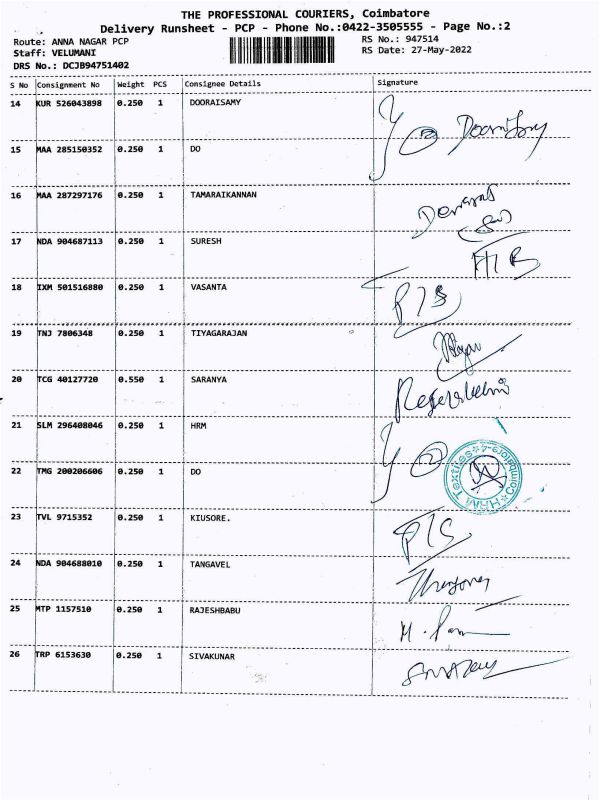 THE PROFESSIONAL COURIERS, Coimbatore
Delivery Runsheet - PCP - Phone No.:0422-3505555 - Page No.:2
Route: ANNA NAGAR PCP
Staff: VELUMANI
DRS No.: DCJB94751402
RS No.: 947514
RS Date: 27-May-2022
S No Consignment No Weight PCS Consignee Details Signature
14 KUR 526043898 0.250 1 DOORAISAMY
15 MAA 285150352 0.250 1 DO
16 MAA 287297176 0.250 1 TAMARAIKANNAN
17 NDA 904687113 0.250 1 SURESH
18 IXM 501516880 0.250 1 VASANTA
19 TNJ 7806348 0.250 1 TIYAGARAJAN
20 TCG 40127720 0.550 1 SARANYA
21 SLM 296408046 0.250 1 HRM
22 TMG 200206606 0.250 1 DO
HRM Textiles Coimbatore-4
23 TVL 9715352 0.250 1 KIUSORE.
24 NDA 904688010 0.250 1 TANGAVEL
25 MTP 1157510 0.250 1 RAJESHBABU
26 TRP 6153630 0.250 1 SIVAKUNAR